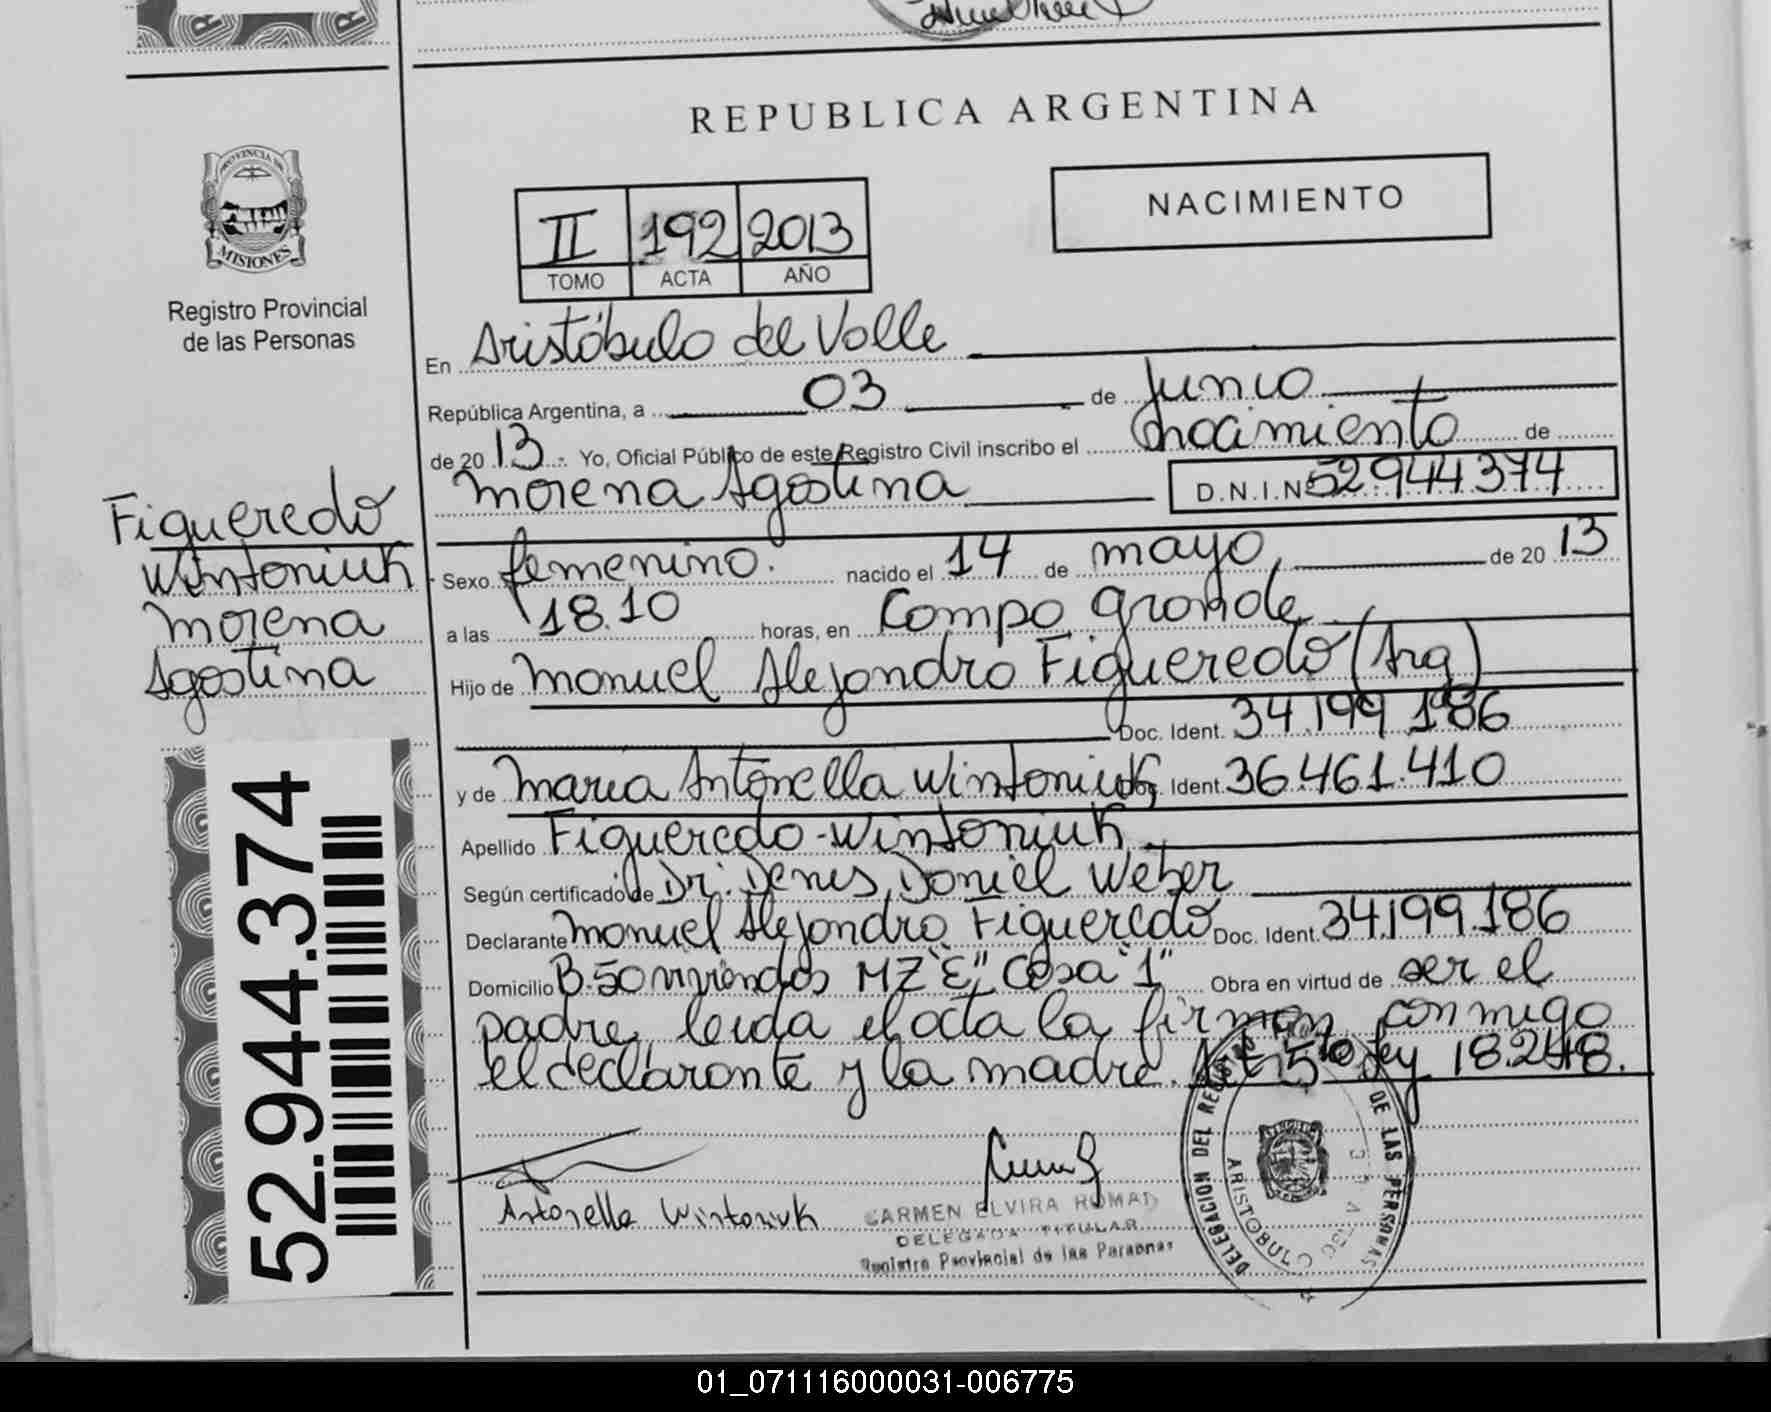 REPUBLICA ARGENTINA
NACIMIENTO
II 192 2013
TOMO ACTA AÑO
PROVINCIA DE
MISIONES
Registro Provincial
de las Personas
En Aristóbulo del Valle
República Argentina, a 03 de Junio
de 20 13 - Yo, Oficial Público de este Registro Civil inscribo el nacimiento de
Morena Agostina D.N.I.Nº 52944374
Figueredo
Wintoniuk
Morena
Agostina
Sexo femenino. nacido el 14 de mayo, de 20 13
a las 18.10 horas, en Campo Grande
Hijo de Manuel Alejandro Figueredo (Arg)
Doc. Ident. 34.199.186
y de Maria Antonella Wintoniuk Doc. Ident. 36.461.410
Apellido Figueredo-Wintoniuk
Según certificado de Dr. Denis Daniel Weber
Declarante Manuel Alejandro Figueredo Doc. Ident. 34.199.186
Domicilio B. 50 viviendas MZ "E" Casa "1" Obra en virtud de ser el
padre, leida el acta la firman conmigo
el declarante y la madre. Art 5to Ley 18.248.
52.944.374
Antonella Wintoniuk
CARMEN ELVIRA ROMAN
DELEGADA TITULAR
Registro Provincial de las Personas
DELEGACION DEL REGISTRO DE LAS PERSONAS
01_071116000031-006775